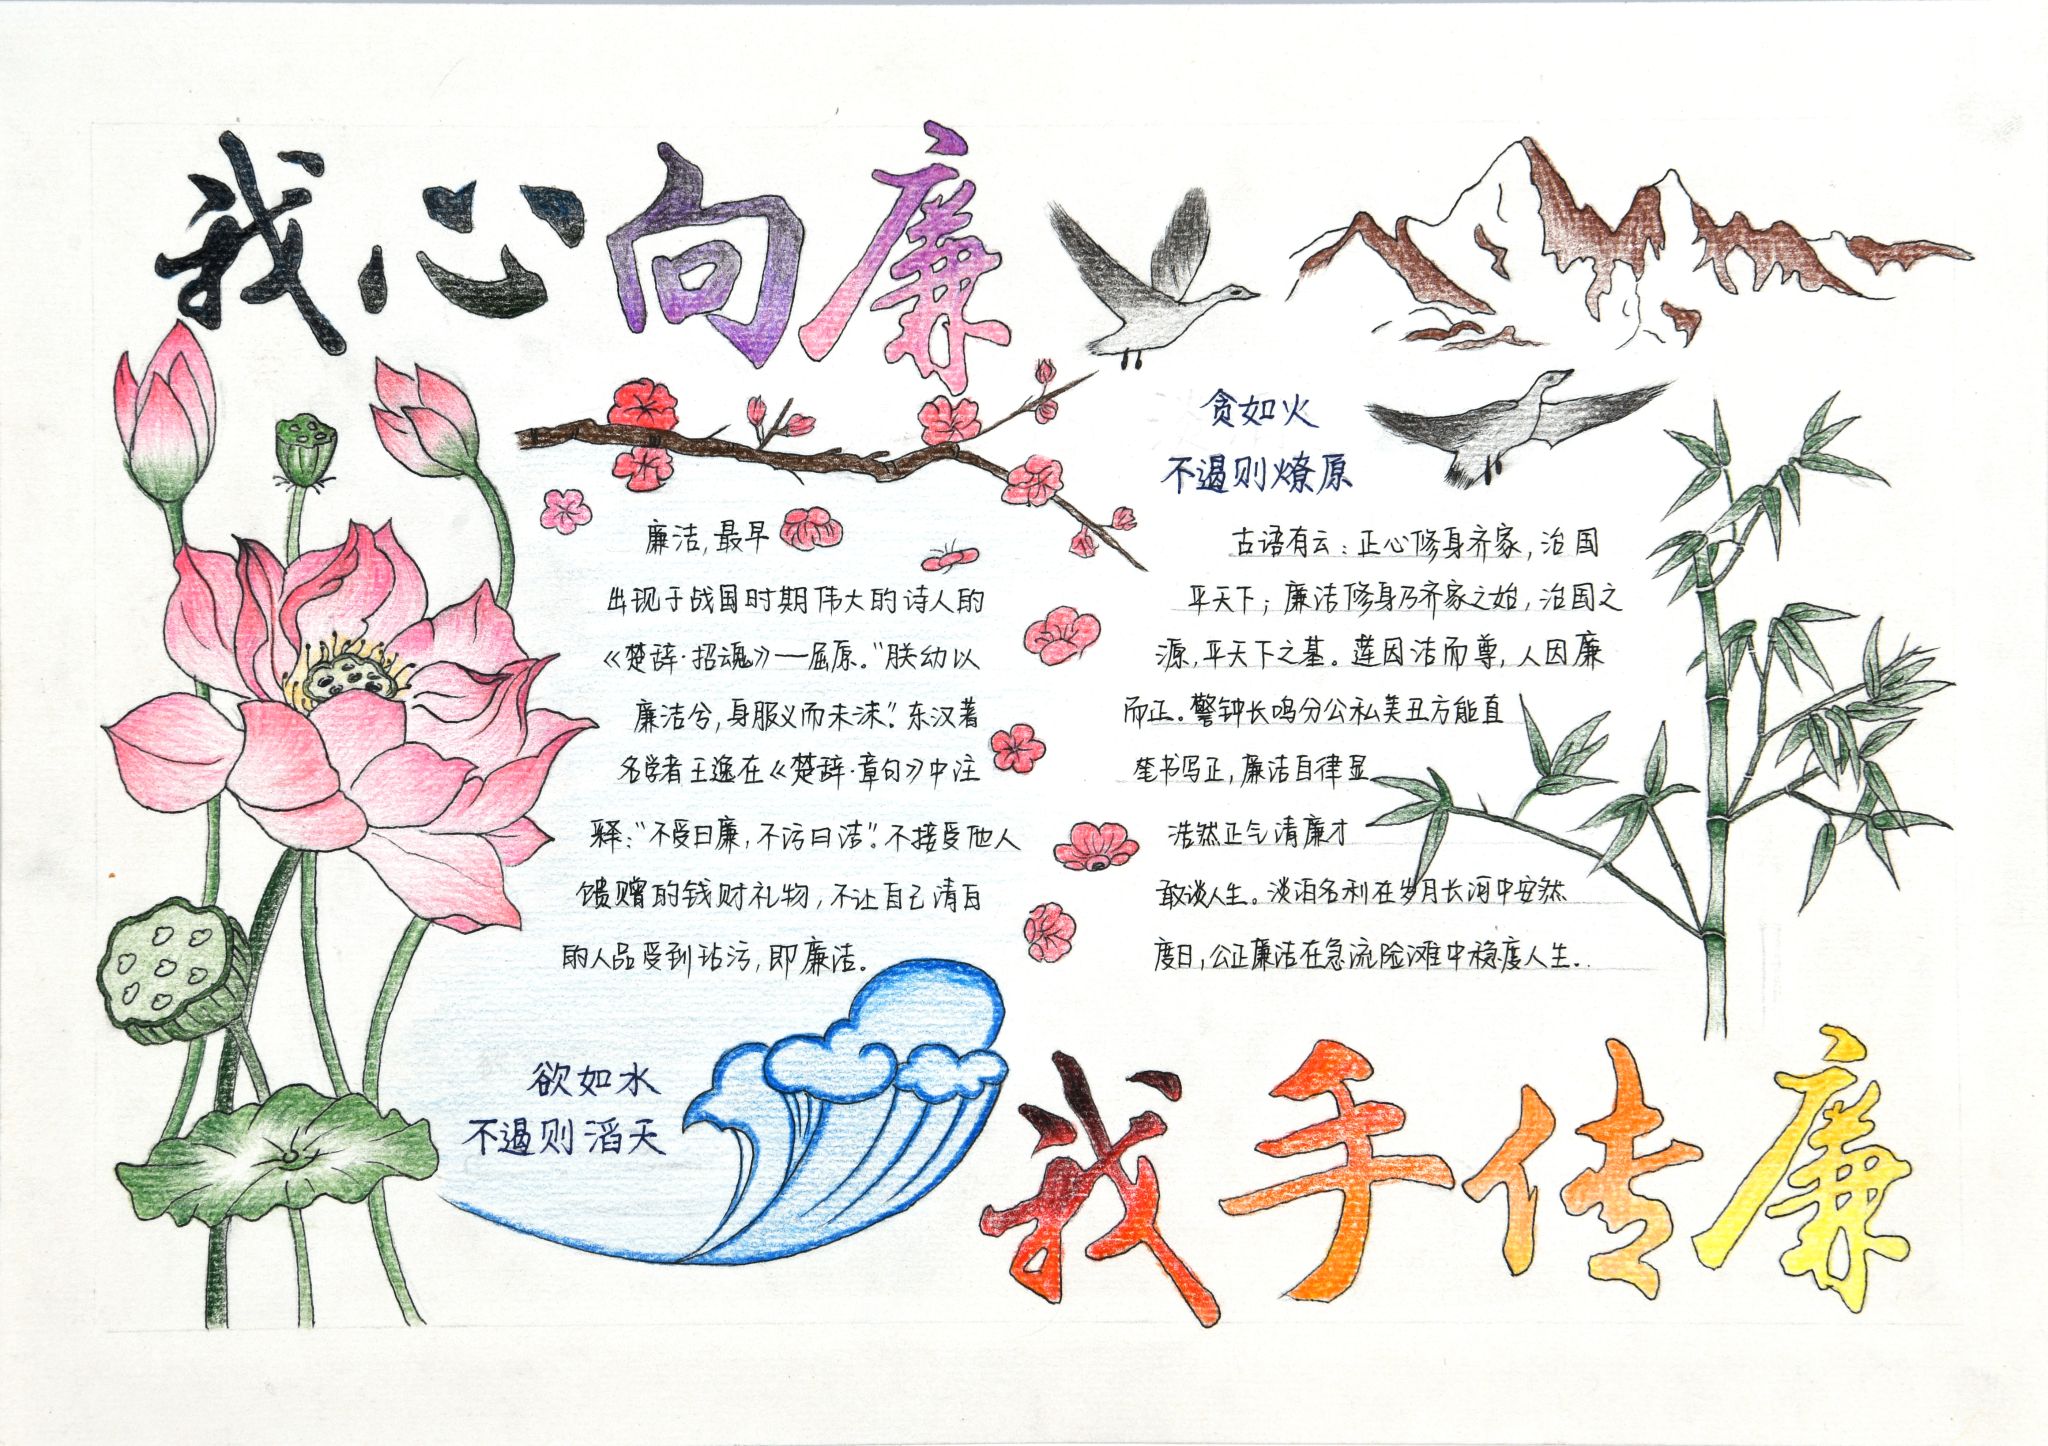 我心向廉
廉洁,最早
出现于战国时期伟大的诗人的
《楚辞·招魂》—屈原。“朕幼以
廉洁兮,身服义而未沫”。东汉著
名学者王逸在《楚辞·章句》中注
释:“不受曰廉,不污曰洁”。不接受他人
馈赠的钱财礼物,不让自己清白
的人品受到玷污,即廉洁。
欲如水
不遏则滔天
贪如火
不遏则燎原
古语有云:正心修身齐家,治国
平天下;廉洁修身乃齐家之始,治国之
源,平天下之基。莲因洁而尊,人因廉
而正。警钟长鸣分公私美丑方能直
笔书写正,廉洁自律显
浩然正气清廉才
敢谈人生。淡泊名利在岁月长河中安然
度日,公正廉洁在急流险滩中稳度人生..
我手传廉